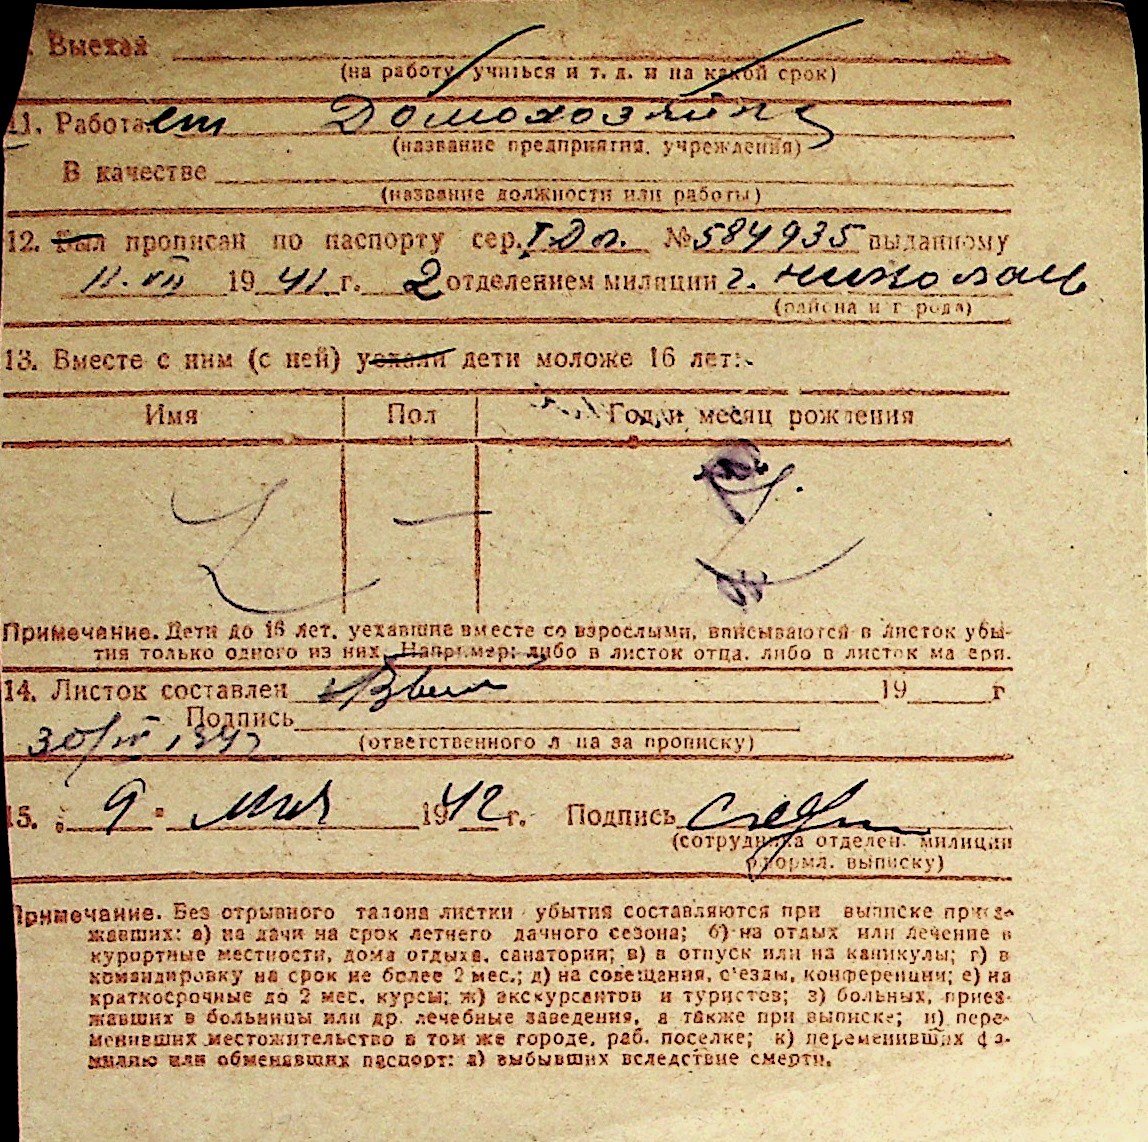 . Выехал
(на работу, учиться и т. д. и на какой срок)
11. Работает Домохозяйка
(название предприятия, учреждения)
В качестве
(название должности или работы)
12. Был прописан по паспорту сер. № 584935 выданному
11. VII 1941 г. 2 отделением милиции г. Николаев
(района и города)
13. Вместе с ним (с ней) уехали дети моложе 16 лет:
Имя Пол Год и месяц рождения
Z — Z
Примечание. Дети до 16 лет, уехавшие вместе со взрослыми, вписываются в листок убы-
тия только одного из них. Например: либо в листок отца, либо в листок матери.
14. Листок составлен 19 г
Подпись
30/IV 1942
(ответственного лица за прописку)
15. " 9 " мая 1942 г. Подпись
(сотрудника отделен. милиции
оформл. выписку)
Примечание. Без отрывного талона листки убытия составляются при выписке приез-
жавших: а) на дачи на срок летнего дачного сезона; б) на отдых или лечение в
курортные местности, дома отдыха, санатории; в) в отпуск или на каникулы; г) в
командировку на срок не более 2 мес.; д) на совещания, с'езды, конференции; е) на
краткосрочные до 2 мес. курсы; ж) экскурсантов и туристов; з) больных, приез-
жавших в больницы или др. лечебные заведения, а также при выписке; и) пере-
менивших местожительство в том же городе, раб. поселке; к) переменивших фа-
милию или обменявших паспорт: л) выбывших вследствие смерти.